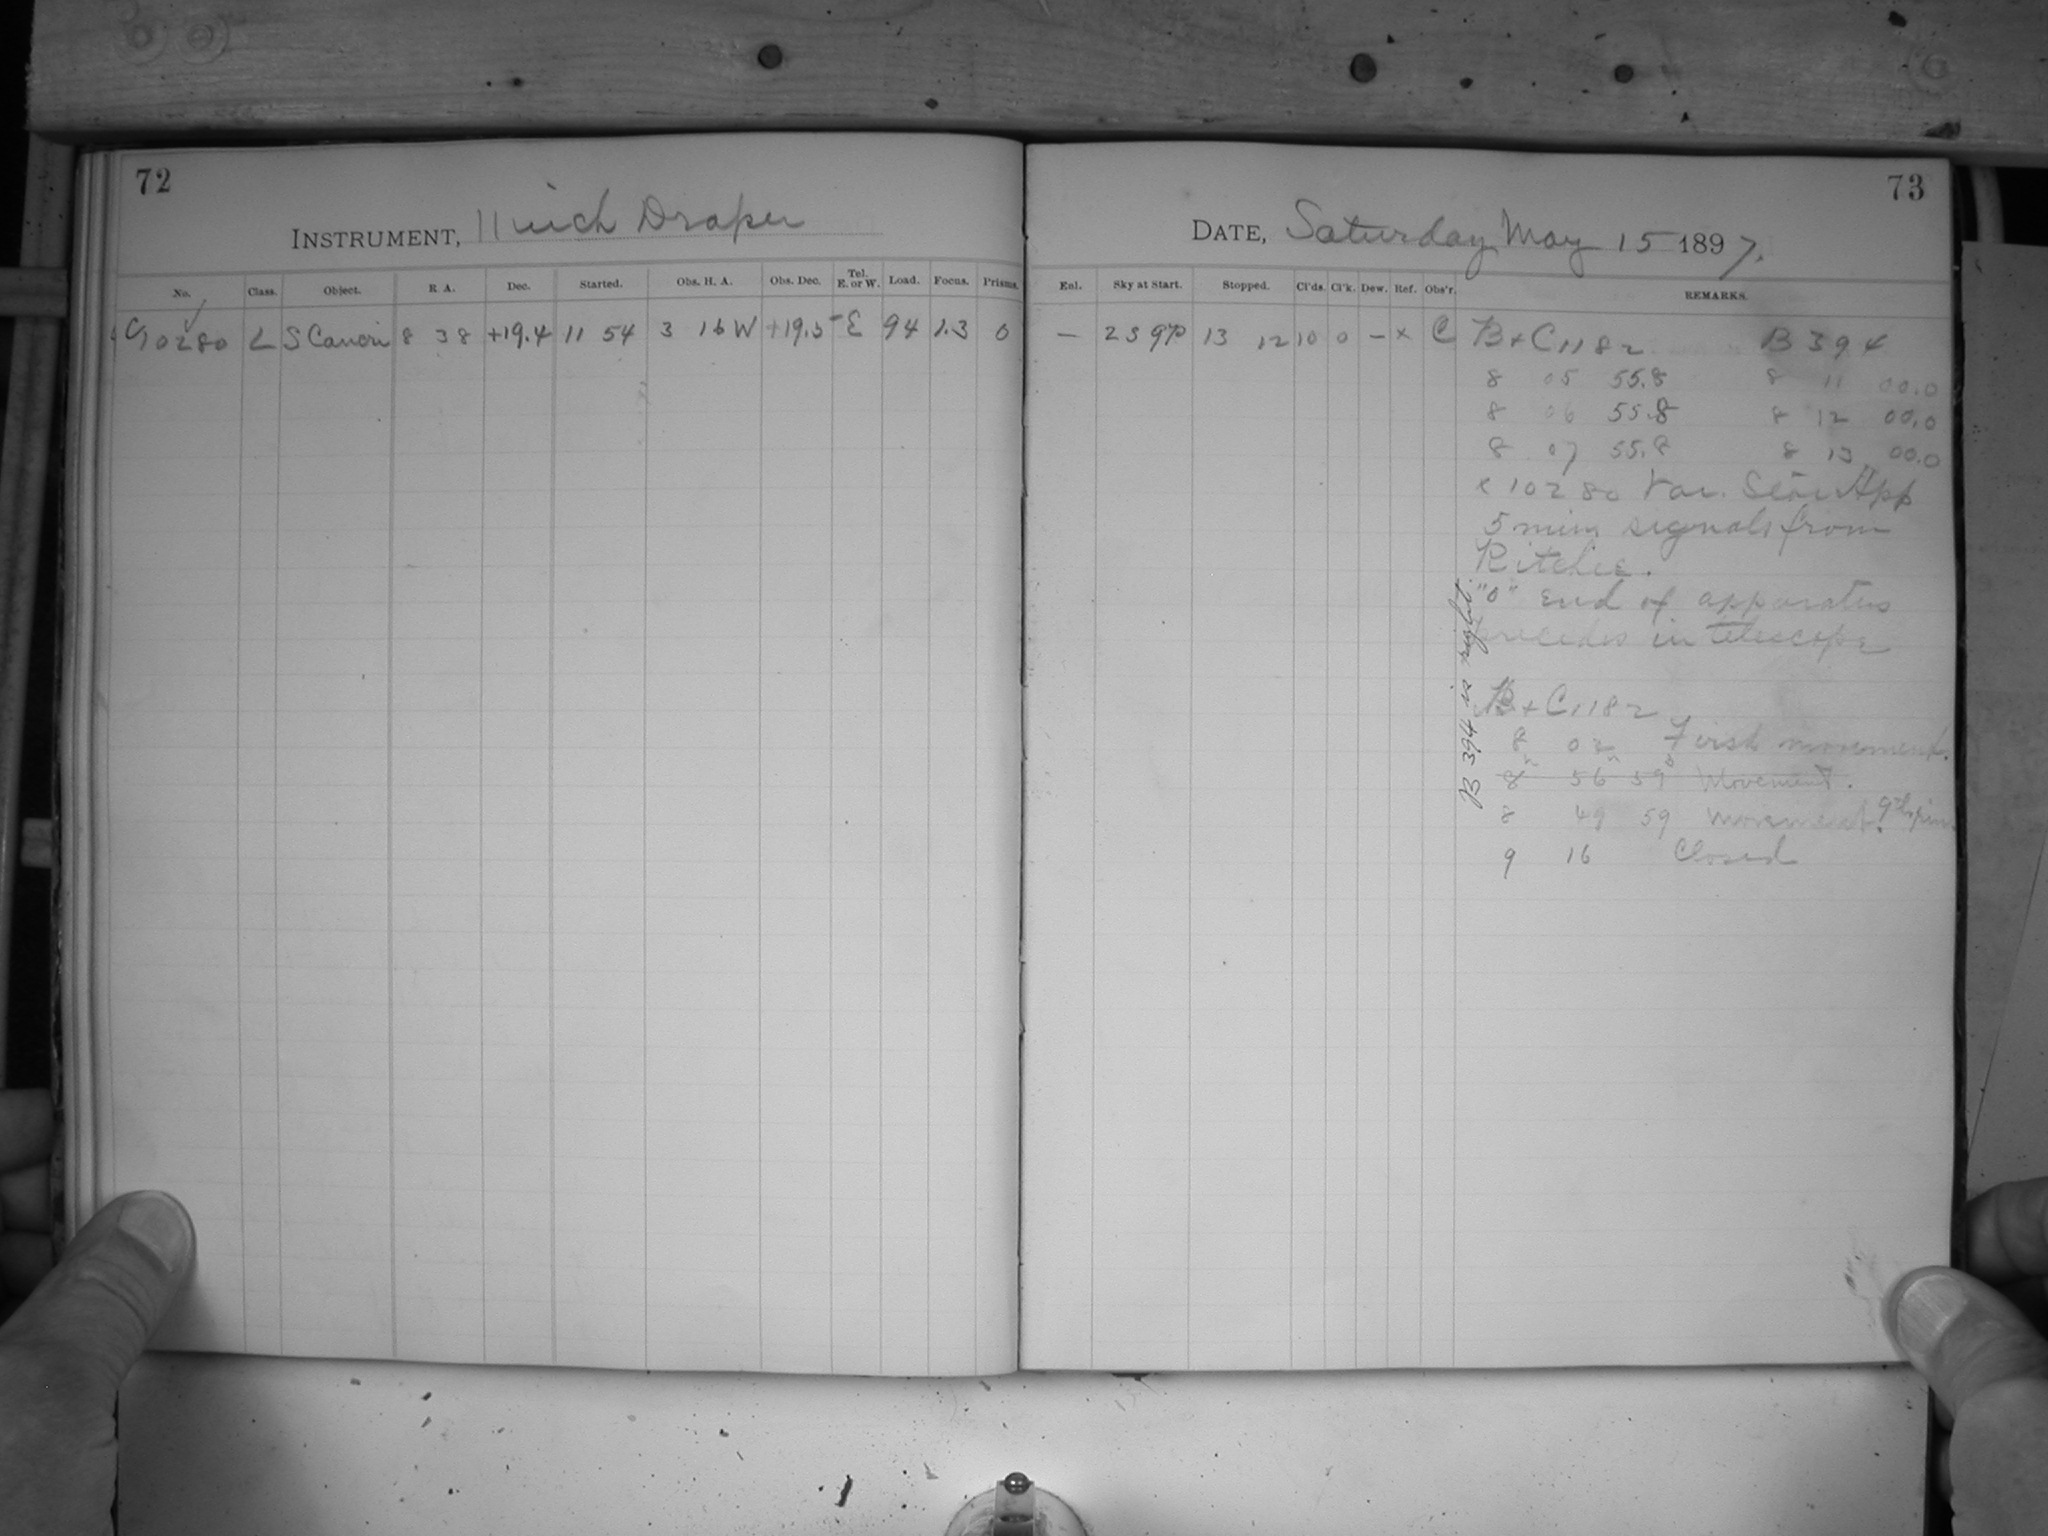 72
INSTRUMENT, 11 inch Draper
No. Class. Object. R A. Dec. Started. Obs. H. A. Obs. Dec. Tel. E. or W. Load. Focus. Prisms.
10280 L S Cancri 8 38 +19.4 11 54 3 16 W +19.5 E 94 1.3 0
73
DATE, Saturday May 15 1897.
Enl. Sky at Start. Stopped. Cl'ds. Cl'k. Dew. Ref. Obs'r. REMARKS.
— 13 12 10 0 — x C B + C 1182 B 394
8 05 55.8 8 11 00.0
8 06 55.8 8 12 00.0
8 07 55.8 8 13 00.0
10280 Var. Star App
5 min signals from
Ritchie.
"0" End of apparatus
precedes in telescope
B 394 is right
B + C 1182
8 02 First movement.
8 56 59 Movement.
8 49 59 movement.
9 16 Closed